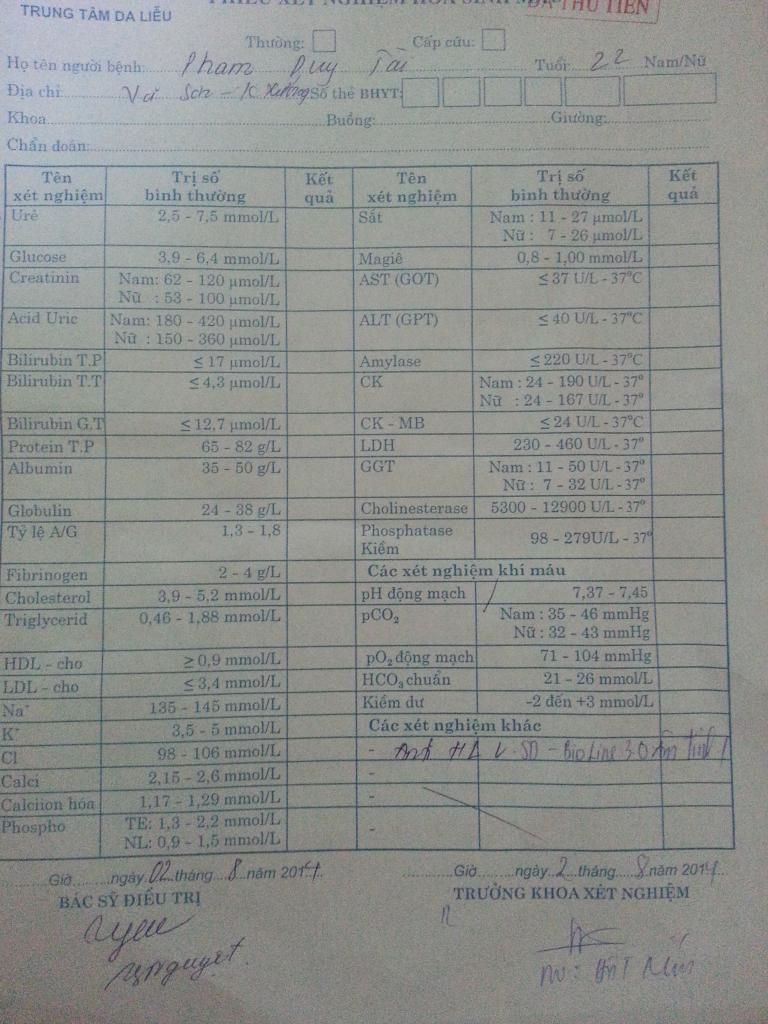 TRUNG TÂM DA LIỄU
PHIẾU XÉT NGHIỆM HÓA SINH MÁU
THU TIỀN
Thường: Cấp cứu:
Họ tên người bệnh: Phạm Duy Tài Tuổi: 22 Nam/Nữ
Địa chỉ Số thẻ BHYT:
Khoa Buồng: Giường:
Chẩn đoán:
Tên xét nghiệm Trị số bình thường Kết quả Tên xét nghiệm Trị số bình thường Kết quả
Urê 2,5 - 7,5 mmol/L Sắt Nam : 11 - 27 μmol/L
Nữ : 7 - 26 μmol/L
Glucose 3,9 - 6,4 mmol/L Magiê 0,8 - 1,00 mmol/L
Creatinin Nam: 62 - 120 μmol/L AST (GOT) ≤ 37 U/L - 37°C
Nữ : 53 - 100 μmol/L
Acid Uric Nam: 180 - 420 μmol/L ALT (GPT) ≤ 40 U/L - 37°C
Nữ : 150 - 360 μmol/L
Bilirubin T.P ≤ 17 μmol/L Amylase ≤ 220 U/L - 37°C
Bilirubin T.T ≤ 4,3 μmol/L CK Nam : 24 - 190 U/L - 37°
Nữ : 24 - 167 U/L - 37°
Bilirubin G.T ≤ 12,7 μmol/L CK - MB ≤ 24 U/L - 37°C
Protein T.P 65 - 82 g/L LDH 230 - 460 U/L - 37°
Albumin 35 - 50 g/L GGT Nam : 11 - 50 U/L - 37°
Nữ : 7 - 32 U/L - 37°
Globulin 24 - 38 g/L Cholinesterase 5300 - 12900 U/L - 37°
Tỷ lệ A/G 1,3 - 1,8 Phosphatase Kiềm 98 - 279U/L - 37°
Fibrinogen 2 - 4 g/L Các xét nghiệm khí máu
Cholesterol 3,9 - 5,2 mmol/L pH động mạch 7,37 - 7,45
Triglycerid 0,46 - 1,88 mmol/L pCO₂ Nam : 35 - 46 mmHg
Nữ : 32 - 43 mmHg
HDL - cho ≥ 0,9 mmol/L pO₂ động mạch 71 - 104 mmHg
LDL - cho ≤ 3,4 mmol/L HCO₃ chuẩn 21 - 26 mmol/L
Na⁺ 135 - 145 mmol/L Kiềm dư -2 đến +3 mmol/L
K⁺ 3,5 - 5 mmol/L Các xét nghiệm khác
Cl 98 - 106 mmol/L - SD - BioLine 3.0 âm tính
Calci 2,15 - 2,6 mmol/L -
Calciion hóa 1,17 - 1,29 mmol/L -
Phospho TE: 1,3 - 2,2 mmol/L -
NL: 0,9 - 1,5 mmol/L
Giờ ngày 02 tháng 8 năm 2014 Giờ ngày 2 tháng 8 năm 2014
BÁC SỸ ĐIỀU TRỊ TRƯỞNG KHOA XÉT NGHIỆM
Nguyệt